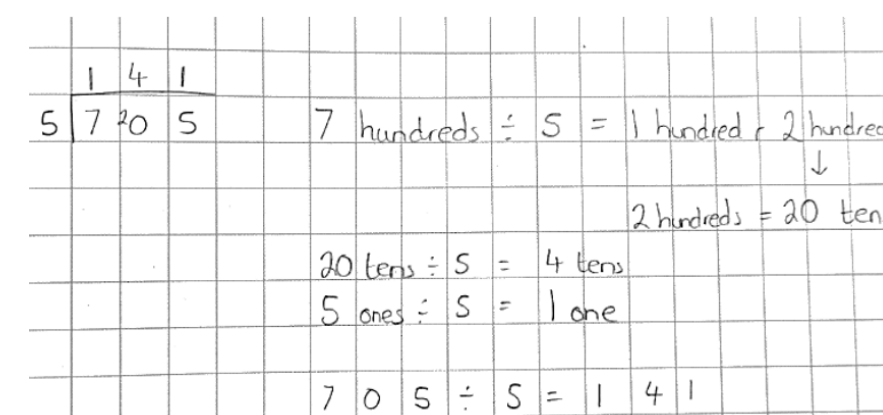 1 4 1
5 7 20 5
7 hundreds ÷ 5 = 1 hundred r 2 hundred
↓
2 hundreds = 20 ten
20 tens ÷ 5 = 4 tens
5 ones ÷ 5 = 1 one
7 0 5 ÷ 5 = 1 4 1